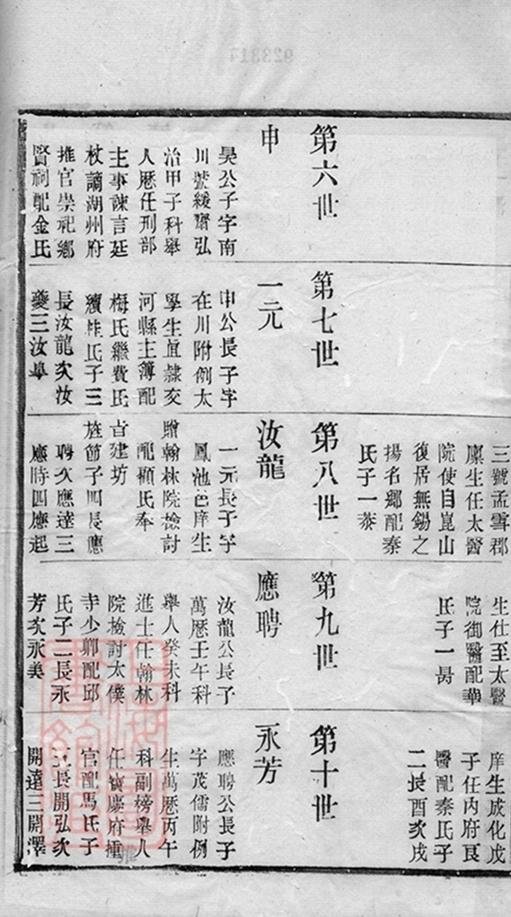 第六世
申
昊公子字南
川號緩齋弘
治甲子科舉
人歷任刑部
主事諫言廷
杖謫湖州府
推官崇祀鄉
賢祠配金氏
第七世
一元
申公長子字
在川附例太
學生直隸交
河縣主簿配
梅氏繼費氏
續桂氏子三
長汝龍次汝
夔三汝皋
三號孟雪郡
廩生任太醫
院使自崑山
復居無錫之
揚名鄉配秦
氏子一泰
第八世
汝龍
一元長子字
鳳池邑庠生
贈翰林院檢討
配顧氏奉
旨建坊
旌節子四長應
聘次應達三
應時四應起
生仕至太醫
院御醫配華
氏子一昺
第九世
應聘
汝龍公長子
萬歷壬午科
舉人癸未科
進士任翰林
院檢討太僕
寺少卿配邱
氏子二長永
芳次永美
庠生成化戊
子任內府良
醫配秦氏子
二長酉次戌
第十世
永芳
應聘公長子
字茂儒附例
生萬歷丙午
科副榜舉人
任寶慶府推
官配馬氏子
三長開弘次
開達三開澤